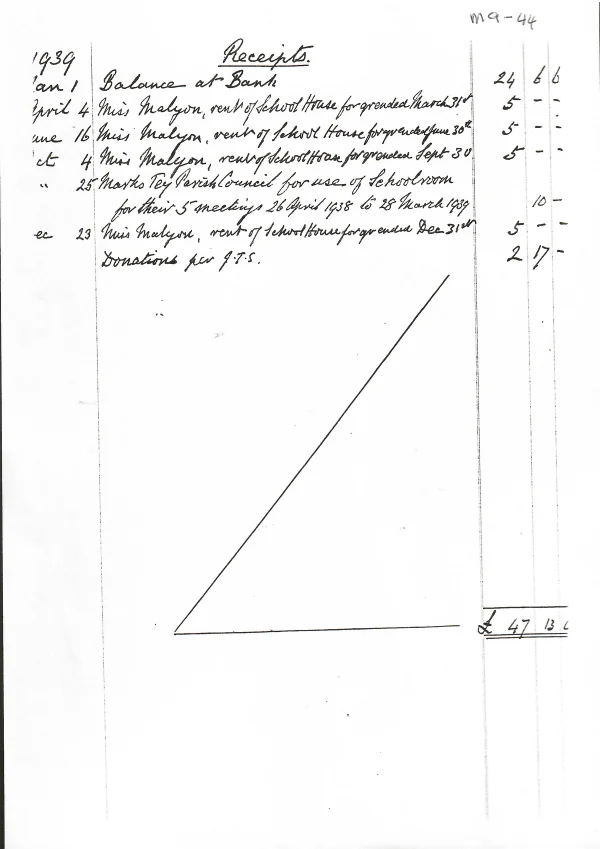 M9-44
1939 Receipts.
Jan 1 Balance at Bank 24 6 6
April 4 Miss Malyon, rent of School House for qr ended March 31st 5 - -
June 16 Miss Malyon, rent of School House for qr ended June 30th 5 - -
ct 4 Miss Malyon, rent of School House for qr ended Sept 30 5 - -
" 25 Marks Tey Parish Council for use of Schoolroom
for their 5 meetings 26 April 1938 to 28 March 1939 10 -
ec 23 Miss Malyon, rent of School House for qr ended Dec 31st 5 - -
Donations per J.T.S. 2 17 -
£ 47 13